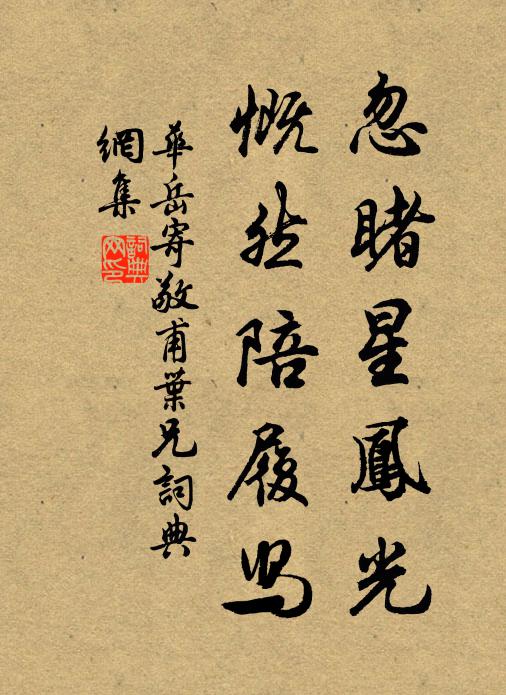 忽睹星鳳光
慨然陪履舄
華岳寄敬甫葉兄詞典
網集
詞典
网印